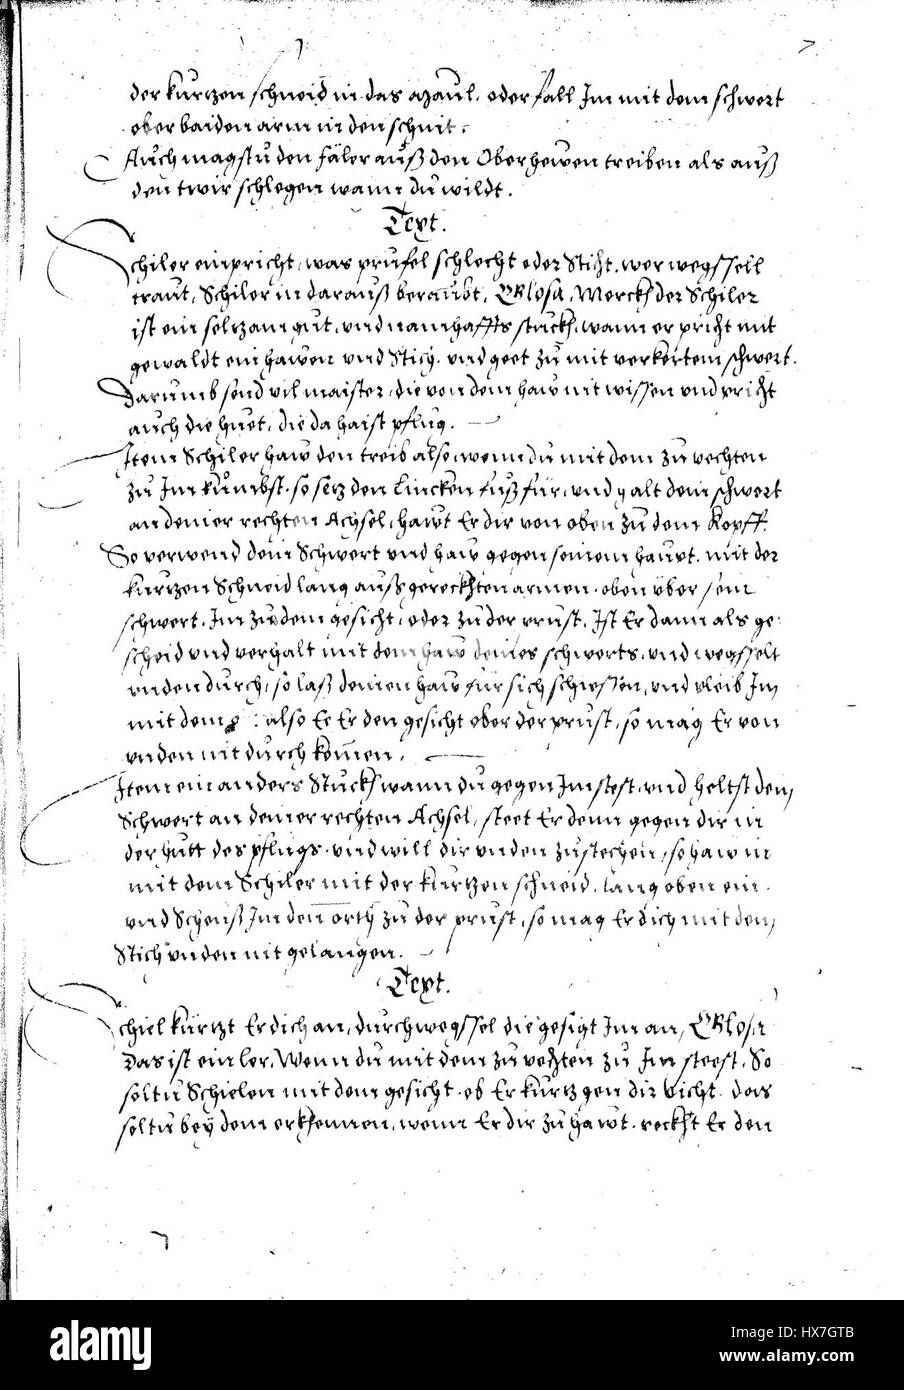 der kurtzen schneid in das maul, oder fall Im mit dem schwert
ober baiden arm in den schnit.
Auch magstu den fäler auß den Oberhewen treiben als auß
den twir schlegen wann du wildt.
Text.
Schiler einpricht, was prufel schlecht oder Sticht, wer wegssell
traut, Schiler in darauß beraubt, Glosa, Merckh der Schiler
ist ein seltzam gut, und namhaffts stuckh, wann er pricht mit
gewaldt ein hawen und Stich, und geet zu mit verkertem schwert.
Darumb send vil maister, die von dem haw nit wissen und pricht
auch die huet, die da haist pflug.
Item Schiler haw den treib also, wenn du mit dem zu vechten
zu Im kumbst, so setz den Lincken fuß für, und halt dein schwert
an deiner rechten Achsel, hawt Er dir von oben zu dem Kopff.
So verwend dein Schwert und haw gegen seinem hawt, mit der
kurtzen Schneid lang auß gereckhten armen, oben über sein
schwert, Im zu dem gesicht, oder zu der prust, Ist Er dann als ge-
scheid und verhalt mit dem haw deines schwerts, und wegsselt
unden durch, so laß deinen haw für sich schiessen, und pleib Im
mit dem : also Er den gesicht ober der prust, so mag Er von
unden nit durch komen.
Item ein anders Stuckh wann du gegen Im stest, und heltst dein
Schwert an deiner rechten Achsel, steet Er denn gegen dir in
der hutt des pflugs und will dir unden zustechen, so haw in
mit dem Schiler mit der kurtzen schneid, lang oben ein
und Scheuß Im den orth zu der prust, so mag Er dich mit dem
Stich unden nit gelangen.
Text.
Schiel kürtzt Er dich an, durchwegssel die gesigt Im an, Glosa
Das ist ein ler, Wenn du mit dem zu vechten zu Im steest, So
soltu Schielen mit dem gesicht, ob Er kurtz gen dir Vicht, das
soltu beÿ dem erkhennen, wenn Er dir zu hawt, reckht Er den
alamy
Image ID: HX7GTB
www.alamy.com